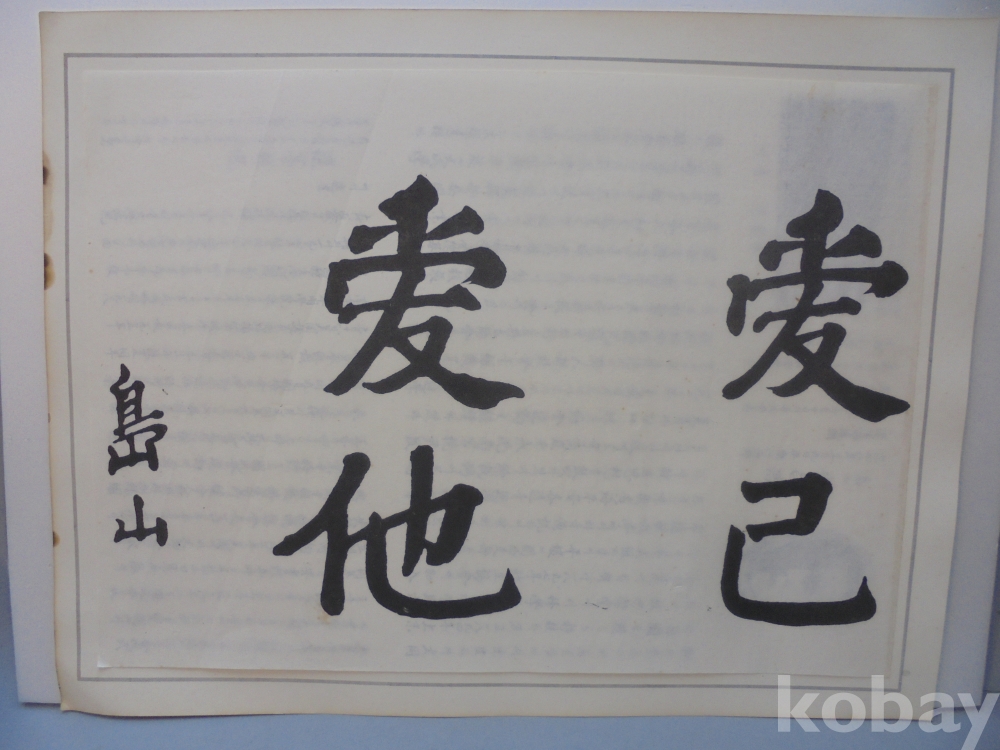 爱己
爱他
島山
kobay